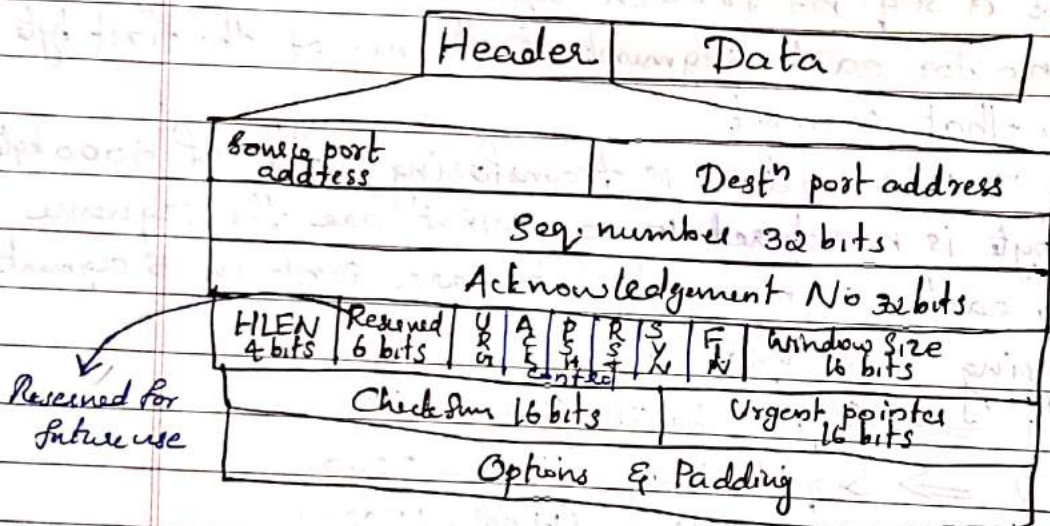 Header Data
Source port address
Destⁿ port address
Seq. number 32 bits
Acknowledgement No 32 bits
HLEN 4 bits
Reserved 6 bits
URG
ACK
PSH
RST
SYN
FIN
Control
Window Size 16 bits
Reserved for future use
CheckSum 16 bits
Urgent pointer 16 bits
Options & Padding